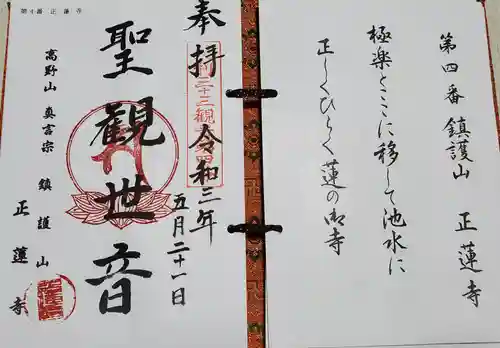 第四番 鎮護山 正蓮寺
極楽とここに移して池水に
正しくひらく蓮の御寺
奉拝 令和三年
五月二十一日
聖観世音
高野山 真言宗 鎮護山
正蓮寺
第十番 正蓮寺